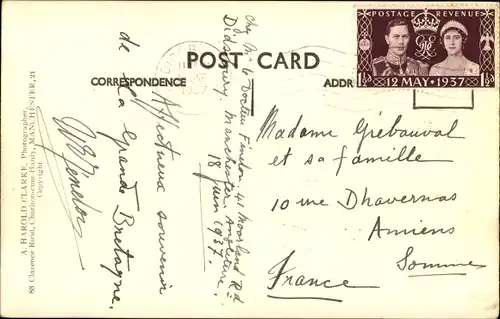 POST CARD
CORRESPONDENCE
ADDR
POSTAGE REVENUE
12 MAY 1937
1½D 1½D
Affectueux souvenir
de la Grande Bretagne.
Chez Mr le Docteur 41 Moorland Rd
Didsbury. Manchester. Angleterre.
18 juin 1937.
Madame Grébauval
et sa famille
10 rue Dhavernas
Amiens
Somme
France
A. HAROLD CLARKE, Photographer,
88 Clarence Road, Chorlton-cum-Hardy, MANCHESTER, 21
Copyright